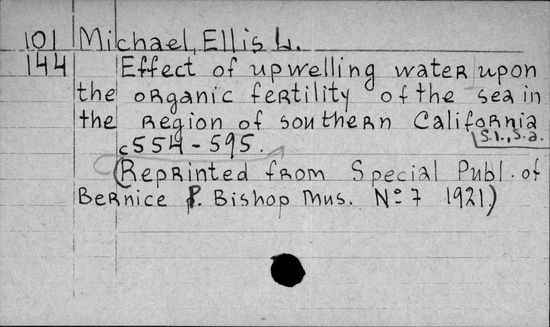 101 Michael, Ellis L.
144 Effect of upwelling water upon
the organic fertility of the sea in
the region of southern California
S.l., s.a.
c554-595.
(Reprinted from Special Publ. of
Bernice P. Bishop Mus. Nº 7 1921.)